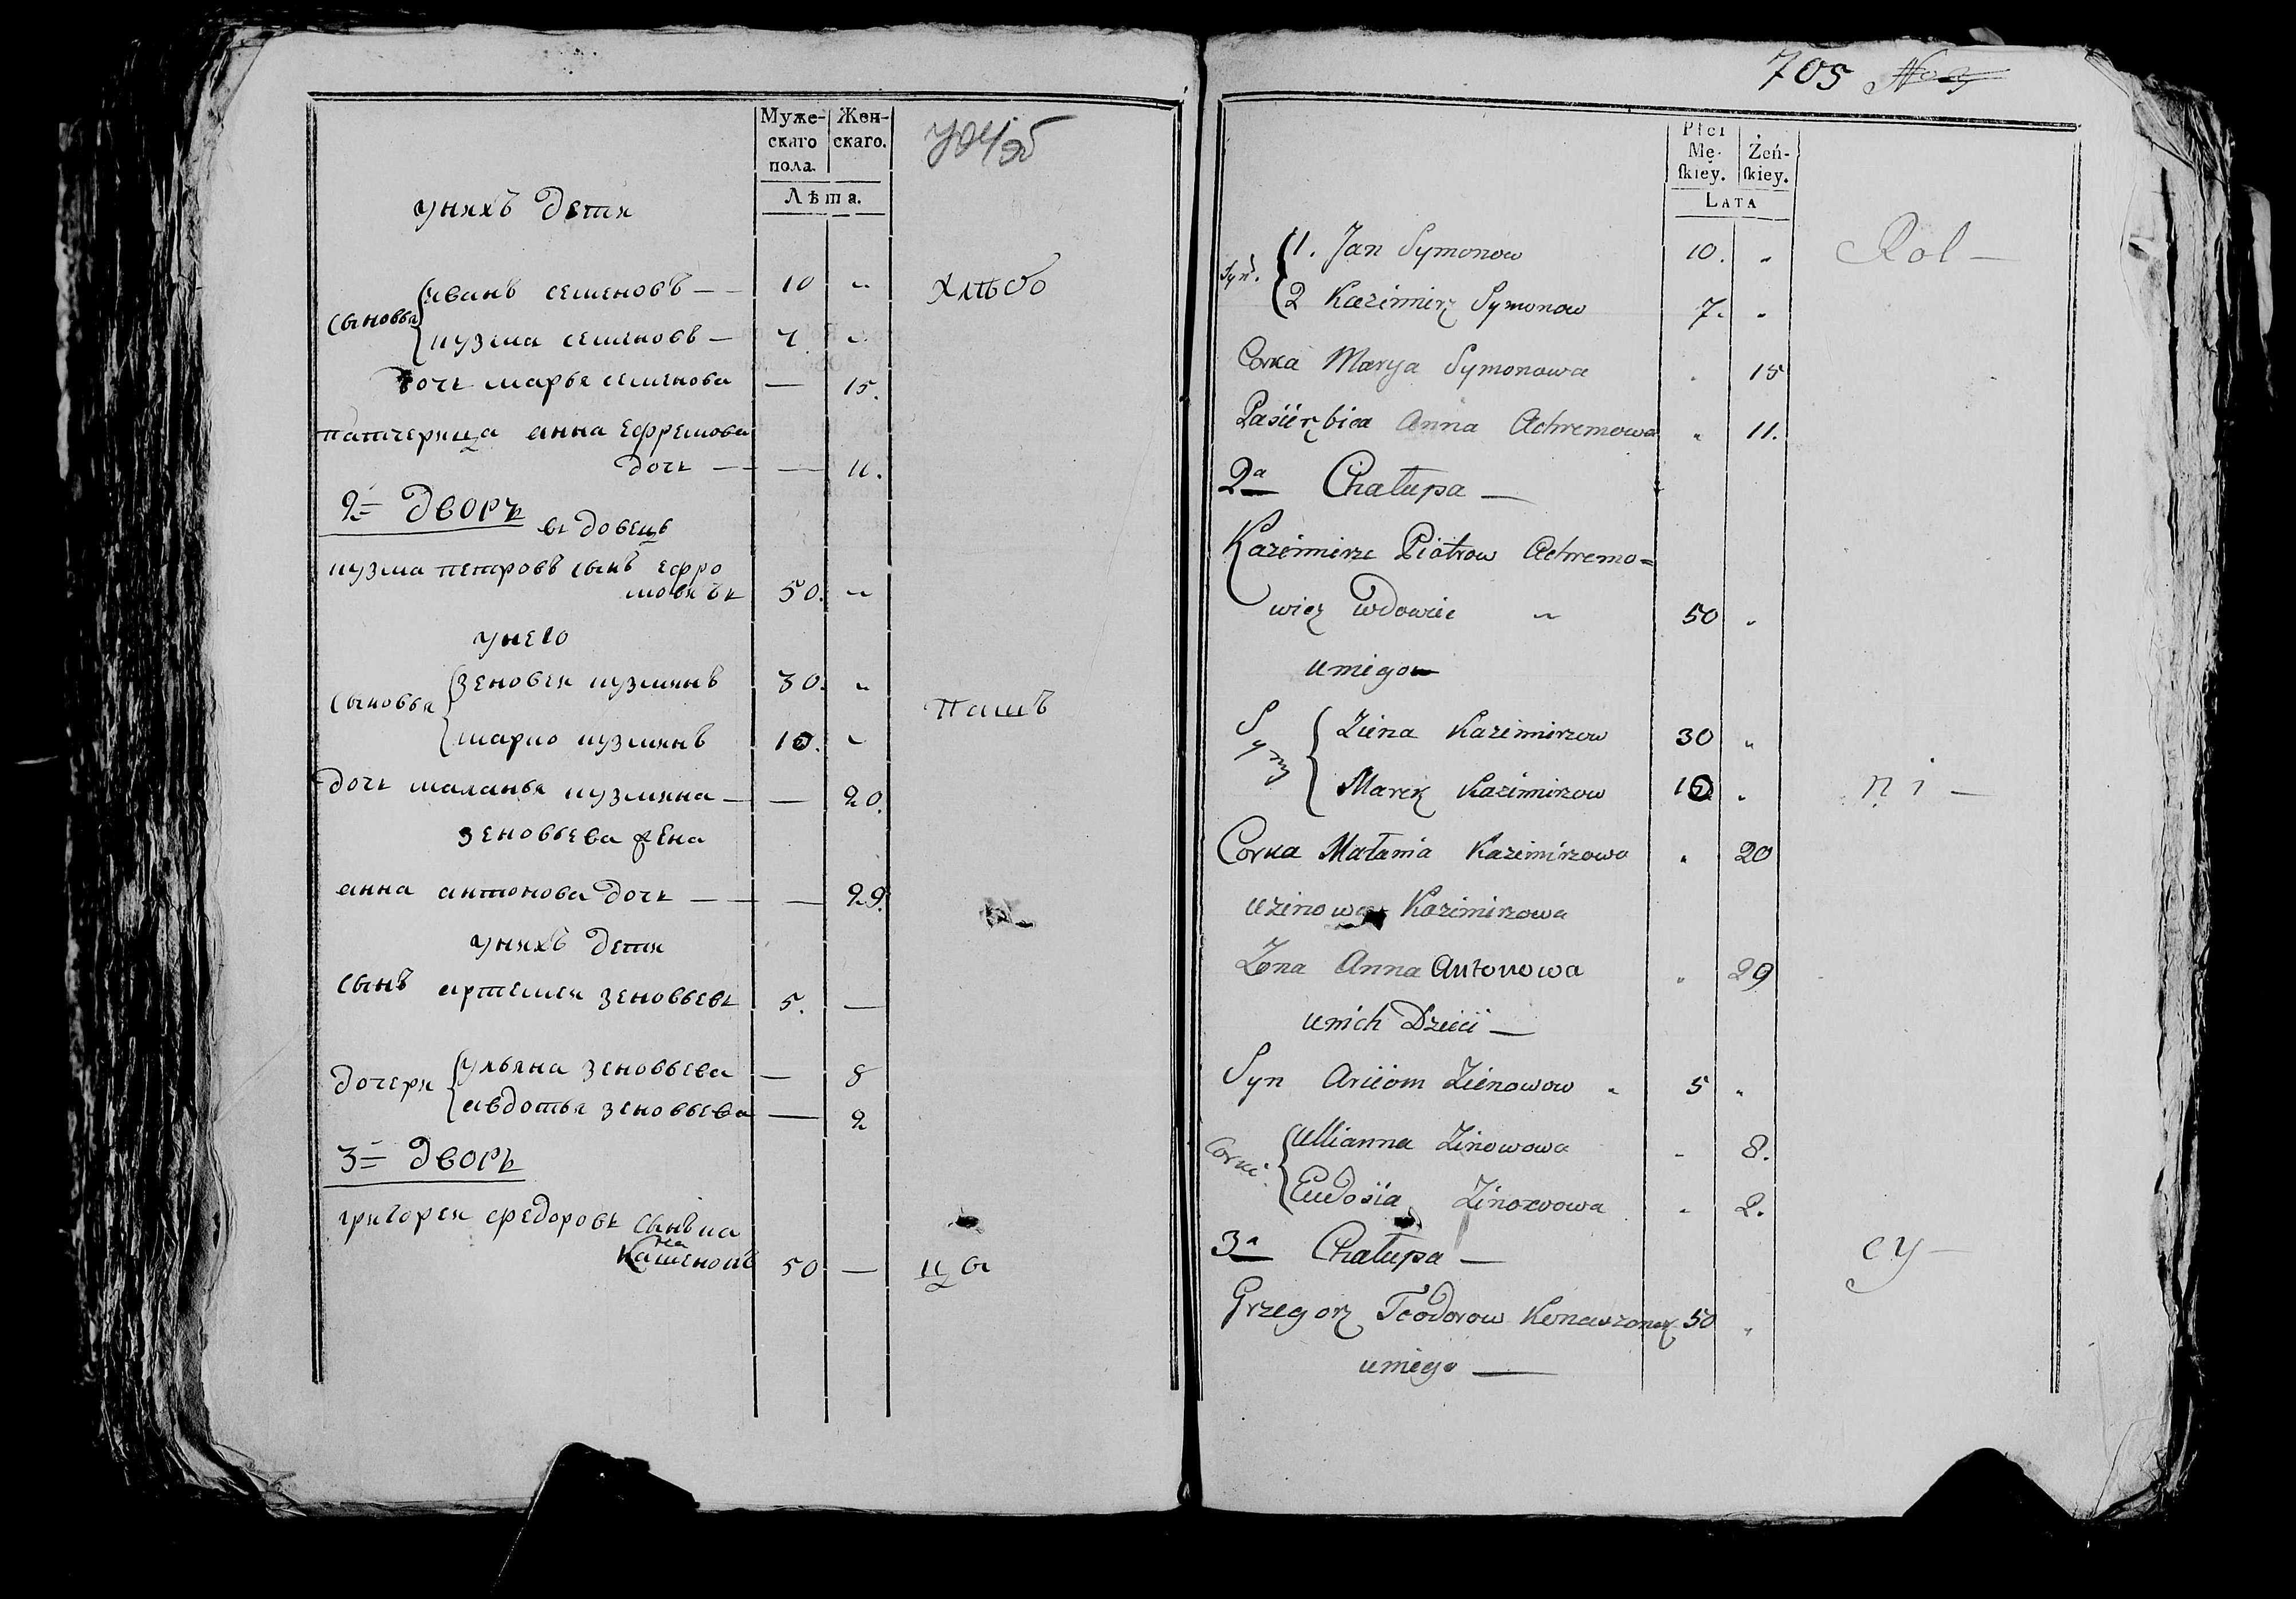 Муже-
скаго
пола.
Жен-
скаго.
Лѣта.
унихъ дети
сыновья
иванъ семеновъ — 10 "
хлѣбо
кузма семеновъ — 7. "
дочь марья семенова — 15.
патчерица анна ефремова
дочь — — 11.
2 = дворъ
вдовецъ
кузма петровъ сынъ ефре
мовичь 50. "
унего
сыновья
зеновеи кузминъ 30. "
пашъ
марко кузминъ 10. "
дочь маланья кузмина — — 20.
зеновьева жена
анна антонова дочь — — 29.
унихъ дети
сынъ артемеи зеновьевъ 5. —
дочери
ульяна зеновьева — 8
авдотья зеновьева — 2
3 = дворъ
григореи федоровъ сынъ
50 —
цы
705
Płci
Mę-
ſkiey.
Żeń-
ſkiey.
LATA
Syn.
1. Jan Symonow 10. "
Rol —
2 Kazimirz Symonow 7. "
Corka Marya Symonowa " 15
Pasierzbica Anna Achremowa " 11.
2a Chałupa —
Kazimirz Piotrow Achremo=
wicz Wdowiec " 50 "
uniego
Syny
Ziena Kazimirzow 30 "
Marek Kazimirzow 10. "
ni —
Corka Małania Kazimirzowa " 20
Kazimirzowa
Zona Anna Antonowa " 29
unich Dzieci —
Syn Arciom Zienowow " 5 "
Corki
Ullianna Zinowowa - 8.
Eudosia Zinowowa " 2.
3a Chałupa —
cy —
Grzegorz Teodorow 50 "
uniego —